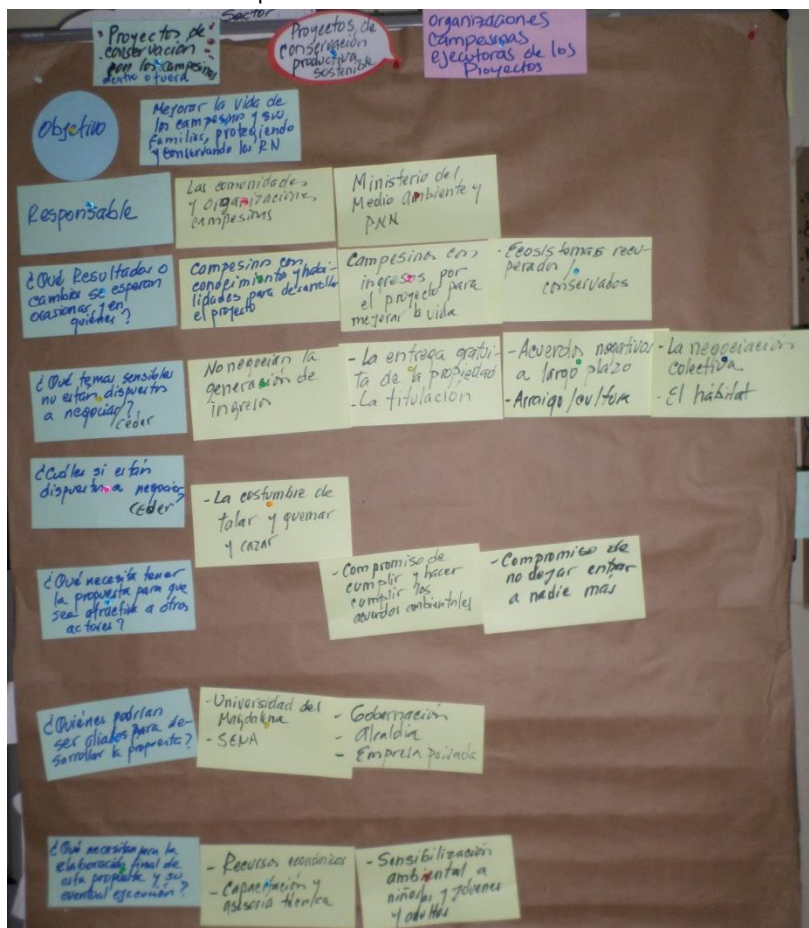 Sector
• Proyectos de
conservación
con los campesinos
dentro o fuera
Proyectos de
conservación
productiva
sostenible
organizaciones
campesinas
ejecutoras de los
Proyectos
Objetivo
Mejorar la vida de
los campesino y su
familias, protegiendo
y conservando los RN
Responsable
Las comunidades
y organizaciones
campesinas
Ministerio del
Medio Ambiente y
PNN
¿Qué Resultados o
cambios se esperan
ocasionar y en
quiénes?
Campesinos con
conocimiento y habi-
lidades para desarrollar
el proyecto
Campesinos con
ingresos por
el proyecto para
mejorar la vida
- Ecosistemas recu-
perados /
conservados
¿Qué temas sensibles
no están dispuestos
a negociar?
ceder
No negocian la
generación de
ingresos
- La entrega gratui-
ta de la propiedad
- La titulación
- Acuerdos negativos
a largo plazo
- Arraigo/cultura
- La negociación
colectiva
- El hábitat
¿Cuáles si están
dispuestos a negociar?
ceder
- La costumbre de
talar y quemar
y cazar
¿Qué necesita tener
la propuesta para que
sea atractiva a otros
actores?
- Compromiso de
cumplir y hacer
cumplir los
acuerdos ambientales
- Compromiso de
no dejar entrar
a nadie mas
¿Quiénes podrían
ser aliados para de-
sarrollar la propuesta?
- Universidad del
Magdalena
- SENA
- Gobernación
- Alcaldía
- Empresa privada
¿Qué necesitan para la
elaboración final de
esta propuesta y su
eventual ejecución?
- Recursos económicos
- Capacitación y
asesoría técnica
- Sensibilización
ambiental a
niños/as y jóvenes
y adultos